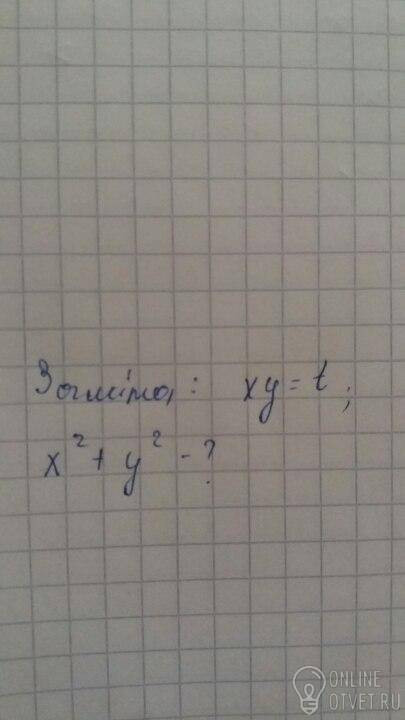 Заміна: xy = t;
x² + y² - ?
ONLINE
OTVET.RU